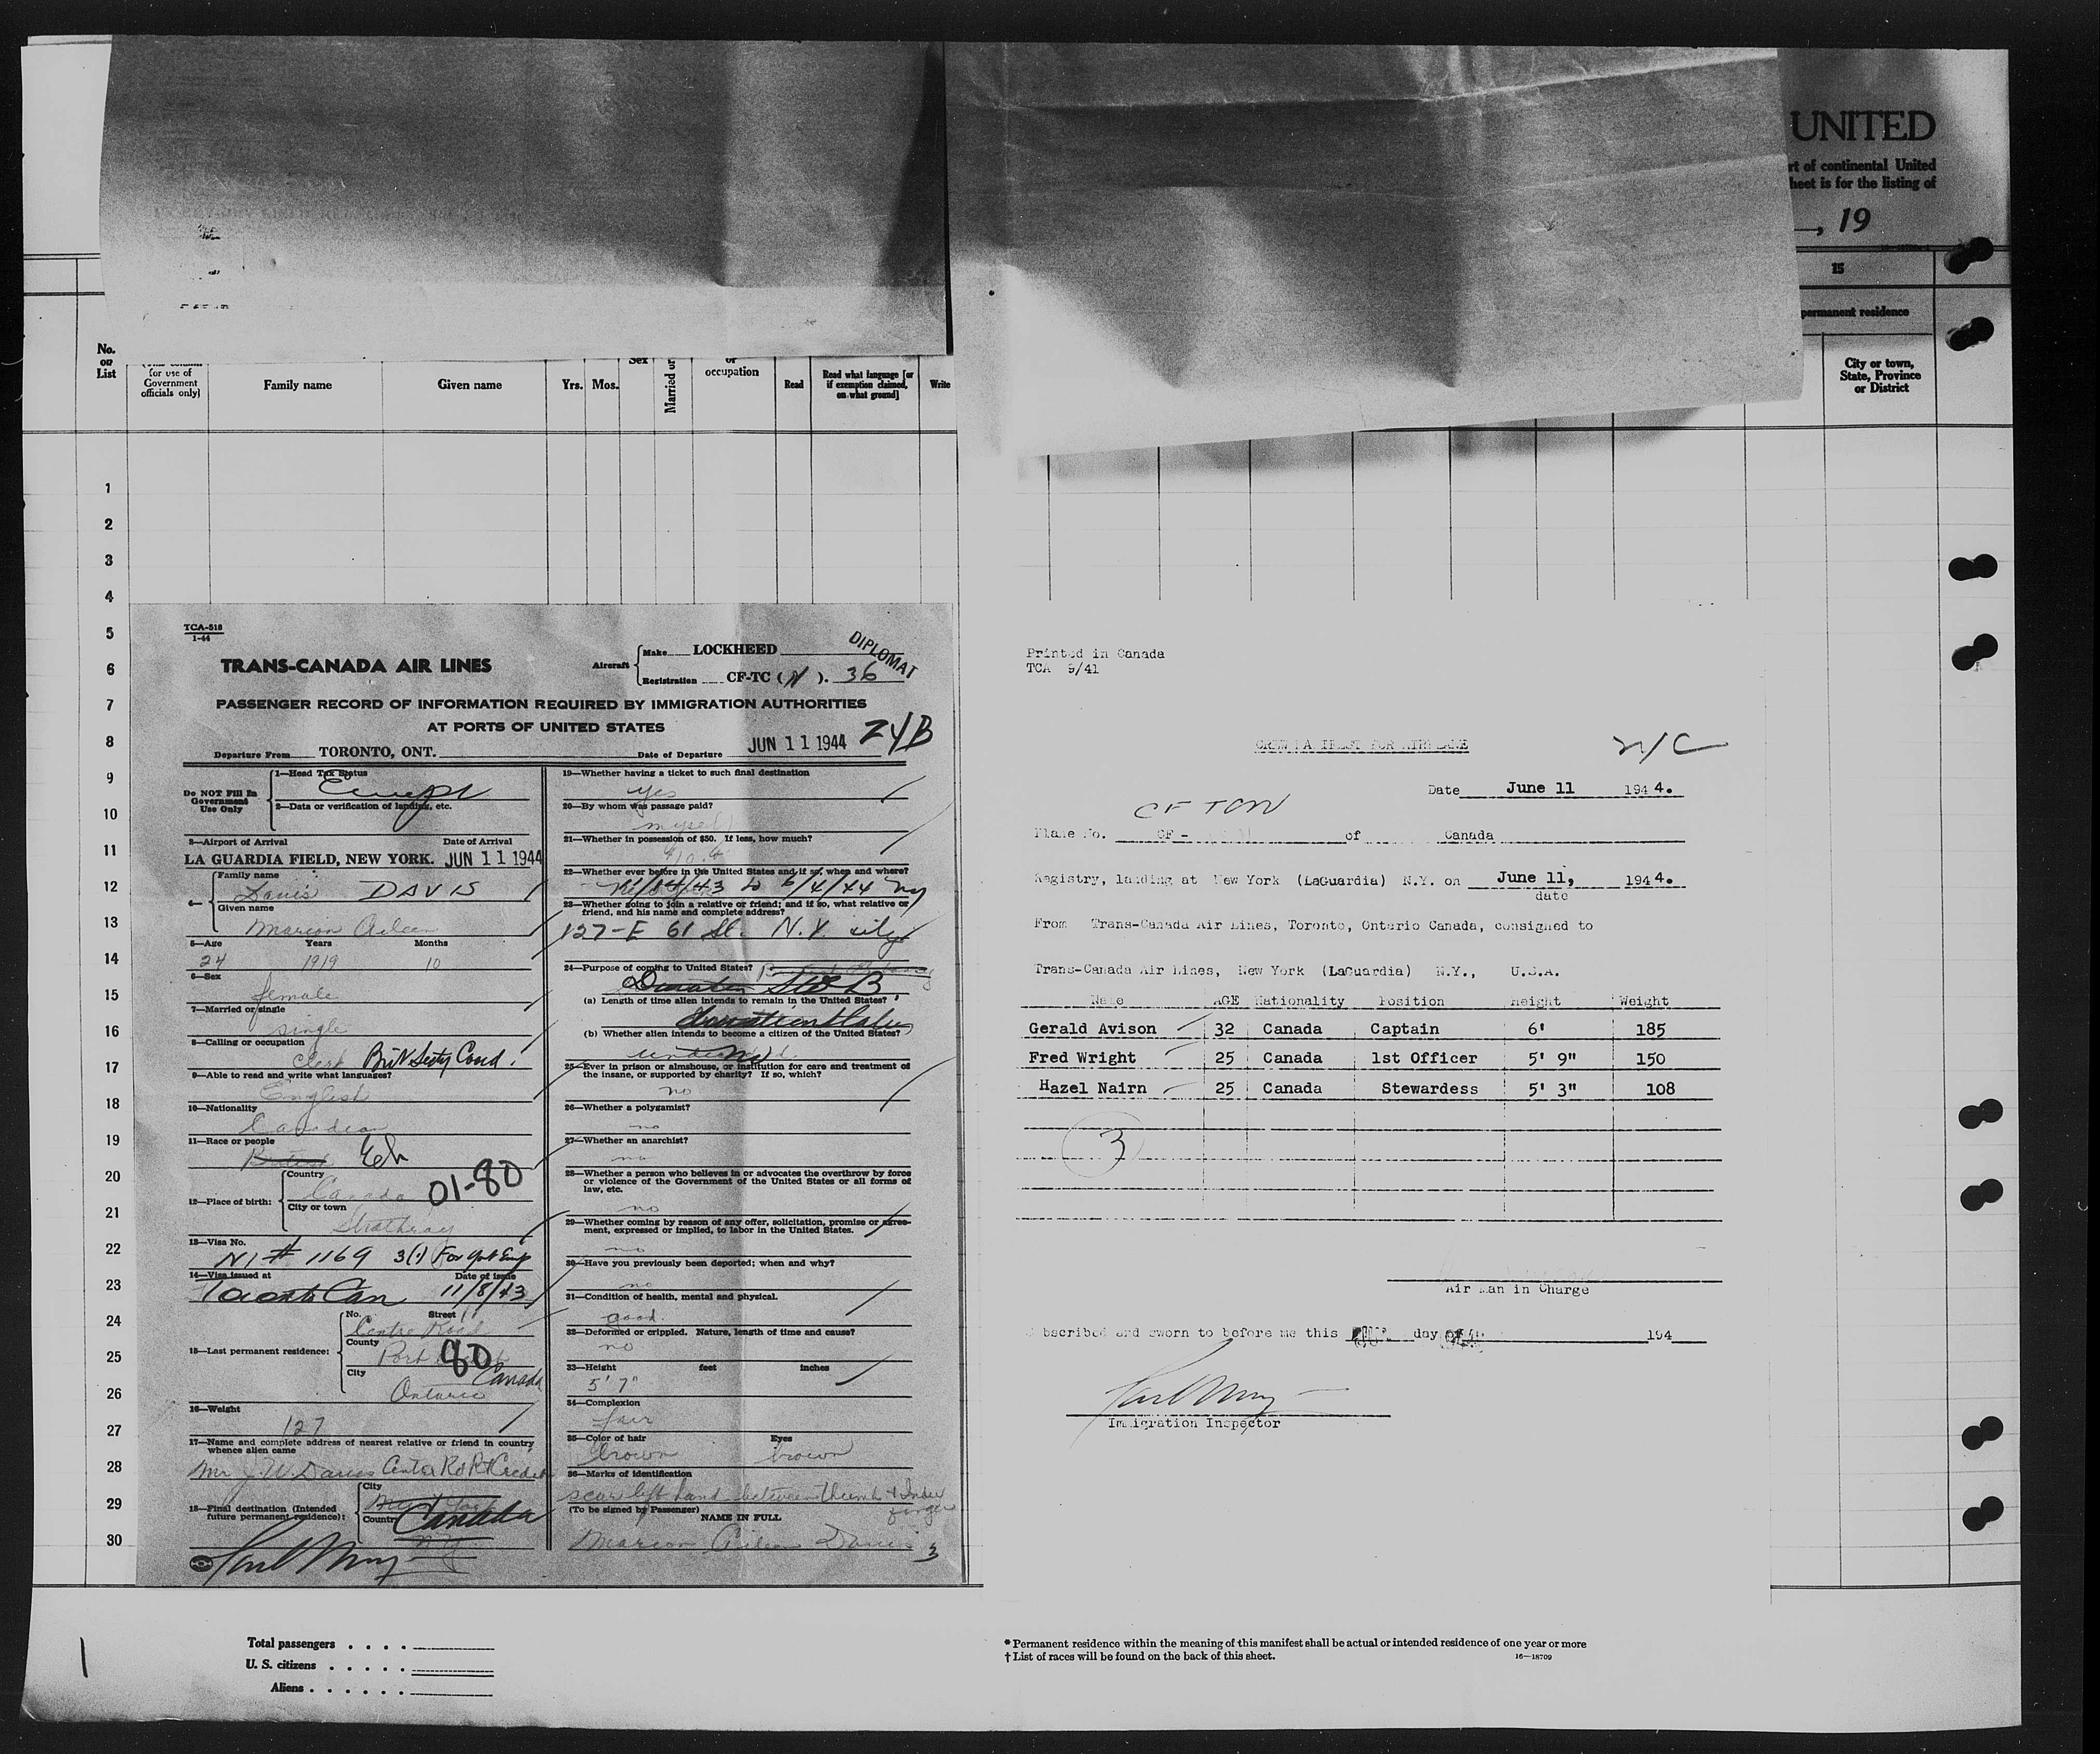 UNITED
rt of continental United
heet is for the listing of
, 19
15
permanent residence
No.
on
List
for use of
Government
officials only)
Family name
Given name
Yrs.
Mos.
Sex
Married or
or
occupation
Read
Read what language [or
if exemption claimed,
on what ground]
Write
City or town,
State, Province
or District
1
2
3
4
5
6
7
8
9
10
11
12
13
14
15
16
17
18
19
20
21
22
23
24
25
26
27
28
29
30
TCA-518
1-44
TRANS-CANADA AIR LINES
Aircraft
Make LOCKHEED
DIPLOMAT
Registration CF-TC (N). 36
PASSENGER RECORD OF INFORMATION REQUIRED BY IMMIGRATION AUTHORITIES
AT PORTS OF UNITED STATES
24B
Departure From TORONTO, ONT. Date of Departure JUN 11 1944
Do NOT Fill In
Government
Use Only
1—Head Tax Status
2—Data or verification of landing, etc.
3—Airport of Arrival Date of Arrival
LA GUARDIA FIELD, NEW YORK. JUN 11 1944
4—
Family name
Davis DAVIS
Given name
Marion Aileen
5—Age Years Months
24 1919 10
6—Sex
female
7—Married or single
single
8—Calling or occupation
Clerk
9—Able to read and write what languages?
English
10—Nationality
Canadian
11—Race or people
British
12—Place of birth:
Country
Canada 01-80
City or town
Strathroy
13—Visa No.
NI # 1169
14—Visa issued at Date of issue
Toronto Can 11/8/43
15—Last permanent residence:
No. Street
Centre Road
County
Port 80
City
Ontario Canada
16—Weight
127
17—Name and complete address of nearest relative or friend in country
whence alien came
Mr J.W. Davis Center Rd Pt Credit
18—Final destination (Intended
future permanent residence):
City
New York
Country
Canada
N.Y.
19—Whether having a ticket to such final destination
yes
20—By whom was passage paid?
myself
21—Whether in possession of $50. If less, how much?
22—Whether ever before in the United States and if so, when and where?
11/14/43 to 6/4/44 NY
23—Whether going to join a relative or friend; and if so, what relative or
friend, and his name and complete address?
127-E 61 St. N.Y. city
24—Purpose of coming to United States?
(a) Length of time alien intends to remain in the United States?
(b) Whether alien intends to become a citizen of the United States?
25—Ever in prison or almshouse, or institution for care and treatment of
the insane, or supported by charity? If so, which?
no
26—Whether a polygamist?
no
27—Whether an anarchist?
no
28—Whether a person who believes in or advocates the overthrow by force
or violence of the Government of the United States or all forms of
law, etc.
no
29—Whether coming by reason of any offer, solicitation, promise or agree-
ment, expressed or implied, to labor in the United States.
no
30—Have you previously been deported; when and why?
no
31—Condition of health, mental and physical.
good.
32—Deformed or crippled. Nature, length of time and cause?
no
33—Height feet inches
5' 7"
34—Complexion
fair
35—Color of hair Eyes
brown brown
36—Marks of identification
scar left hand between thumb & index
finger
(To be signed by Passenger)
NAME IN FULL
Marion Aileen Davis
3
Printed in Canada
TCA 9/41
Date June 11 1944.
CF TCN
Plane No. CF - of Canada
Registry, landing at New York (LaGuardia) N.Y. on June 11, 1944.
date
From Trans-Canada Air Lines, Toronto, Ontario Canada, consigned to
Trans-Canada Air Lines, New York (LaGuardia) N.Y., U.S.A.
Name AGE Nationality Position Height Weight
Gerald Avison 32 Canada Captain 6' 185
Fred Wright 25 Canada 1st Officer 5' 9" 150
Hazel Nairn 25 Canada Stewardess 5' 3" 108
3
Air Man in Charge
bscribed and sworn to before me this day of 194
Immigration Inspector
Total passengers
U. S. citizens
Aliens
* Permanent residence within the meaning of this manifest shall be actual or intended residence of one year or more
† List of races will be found on the back of this sheet.
16—18709